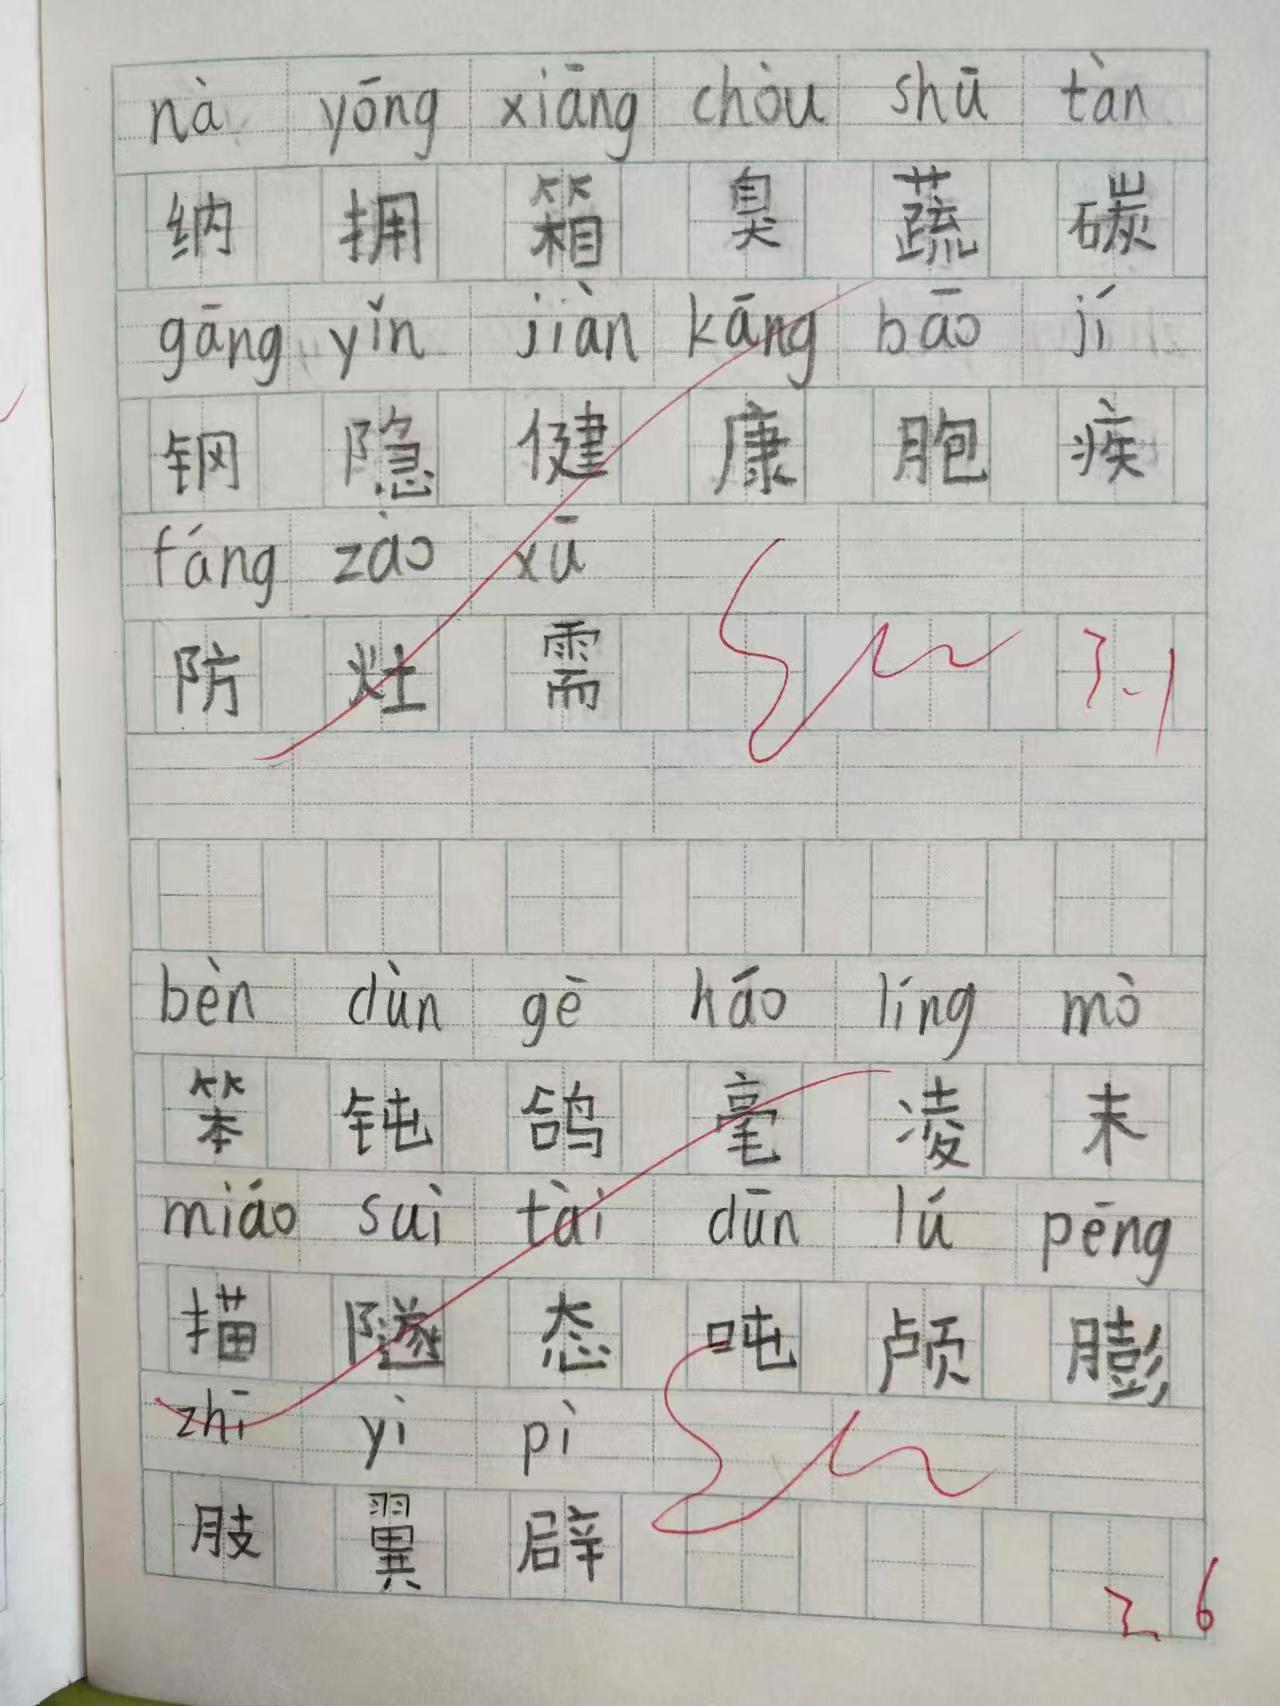 nà yōng xiāng chòu shū tàn
纳 拥 箱 臭 蔬 碳
gāng yǐn jiàn kāng bāo jí
钢 隐 健 康 胞 疾
fáng zào xū
防 灶 需
3.1
bèn dùn gē háo líng mò
笨 钝 鸽 毫 凌 末
miáo suì tài dūn lú péng
描 隧 态 吨 颅 膨
zhī yì pì
肢 翼 辟
2.6